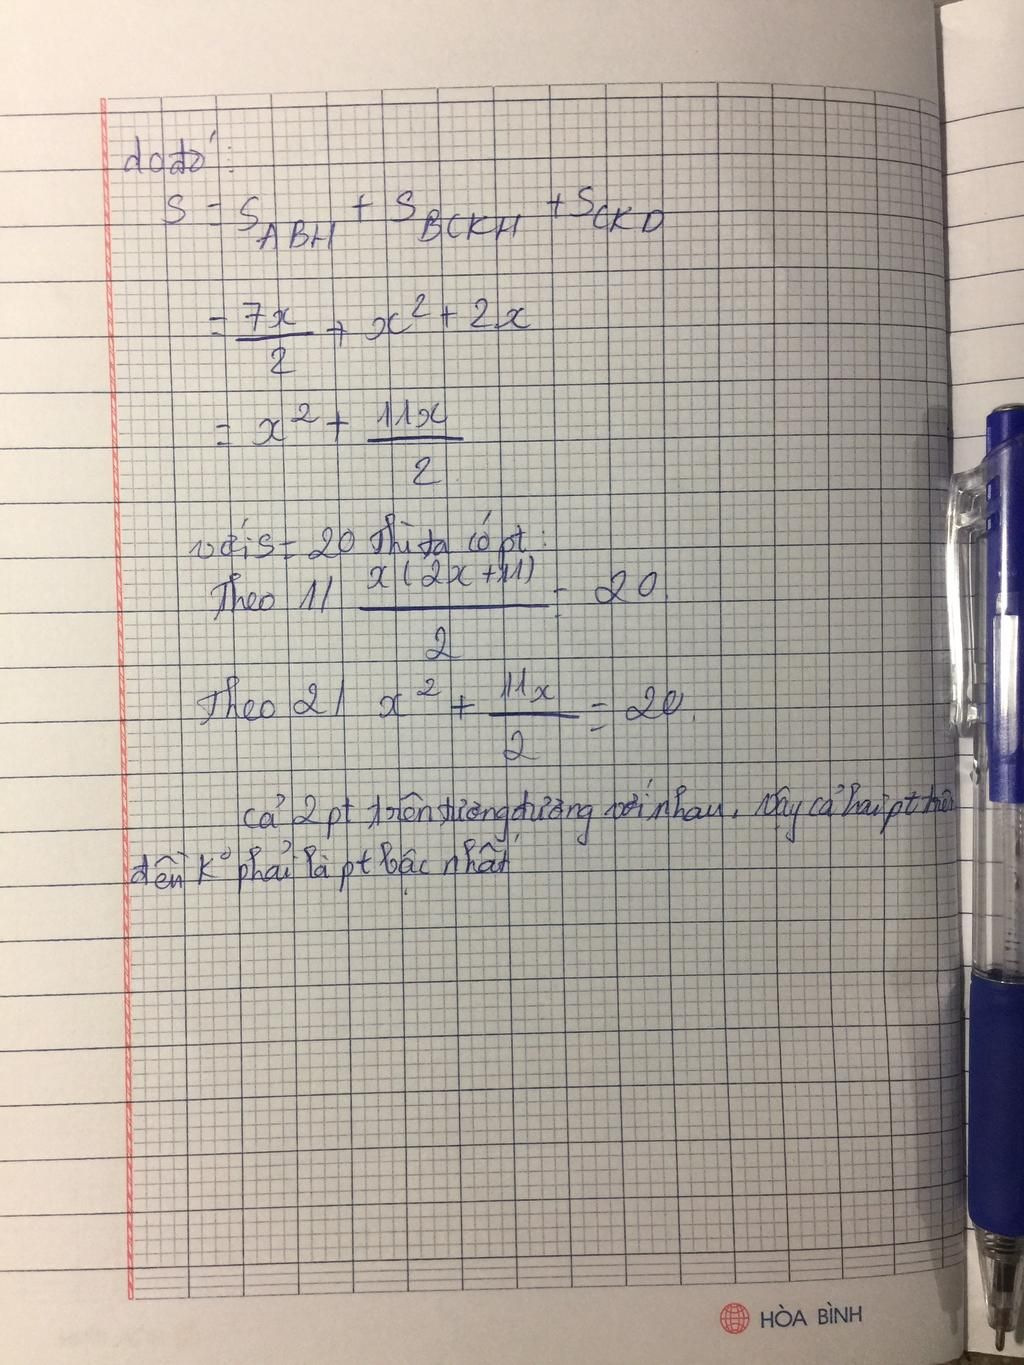 do đó:
S = S_ABH + S_BCKH + S_CKD
= 7x/2 + x² + 2x
= x² + 11x/2
với S = 20 Thì ta có pt:
Theo 1/ x(2x+11)/2 = 20.
Theo 2/ x² + 11x/2 = 20.
cả 2 pt trên tương đương với nhau, vậy cả hai pt trên
đều k° phải là pt bậc nhất
HÒA BÌNH